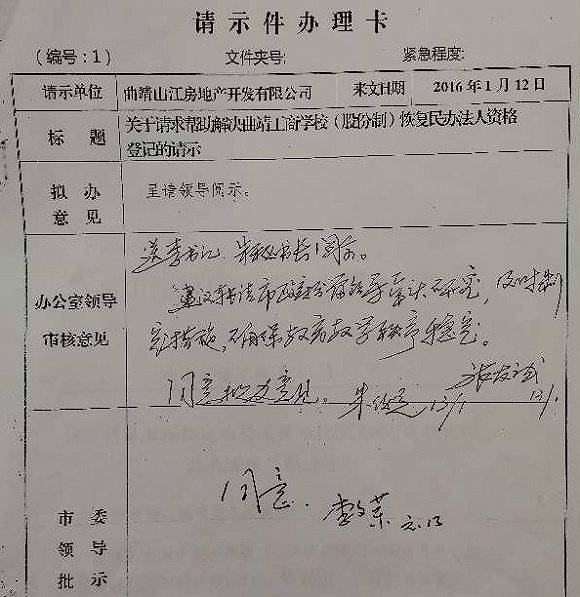 请示件办理卡
（编号：1） 文件夹号: 紧急程度:
请示单位 曲靖山江房地产开发有限公司 来文日期 2016年1月12日
标题 关于请求帮助解决曲靖工商学校（股份制）恢复民办法人资格
登记的请示
拟办
意见 呈请领导阅示。
送李书记、朱秘书长阅示。
办公室领导
审核意见
建议转请市政府分管领导牵头研究，及时制
定措施，确保教育教学秩序稳定。
12/1
同意拟办意见。 12/1
同意. 李文荣
市委
领导
批示